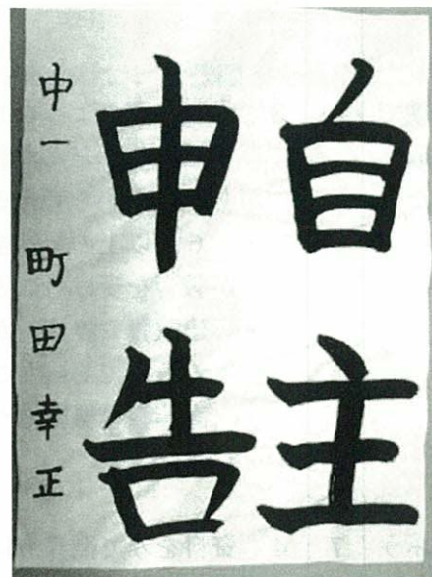 自主
申告
中一 町田幸正